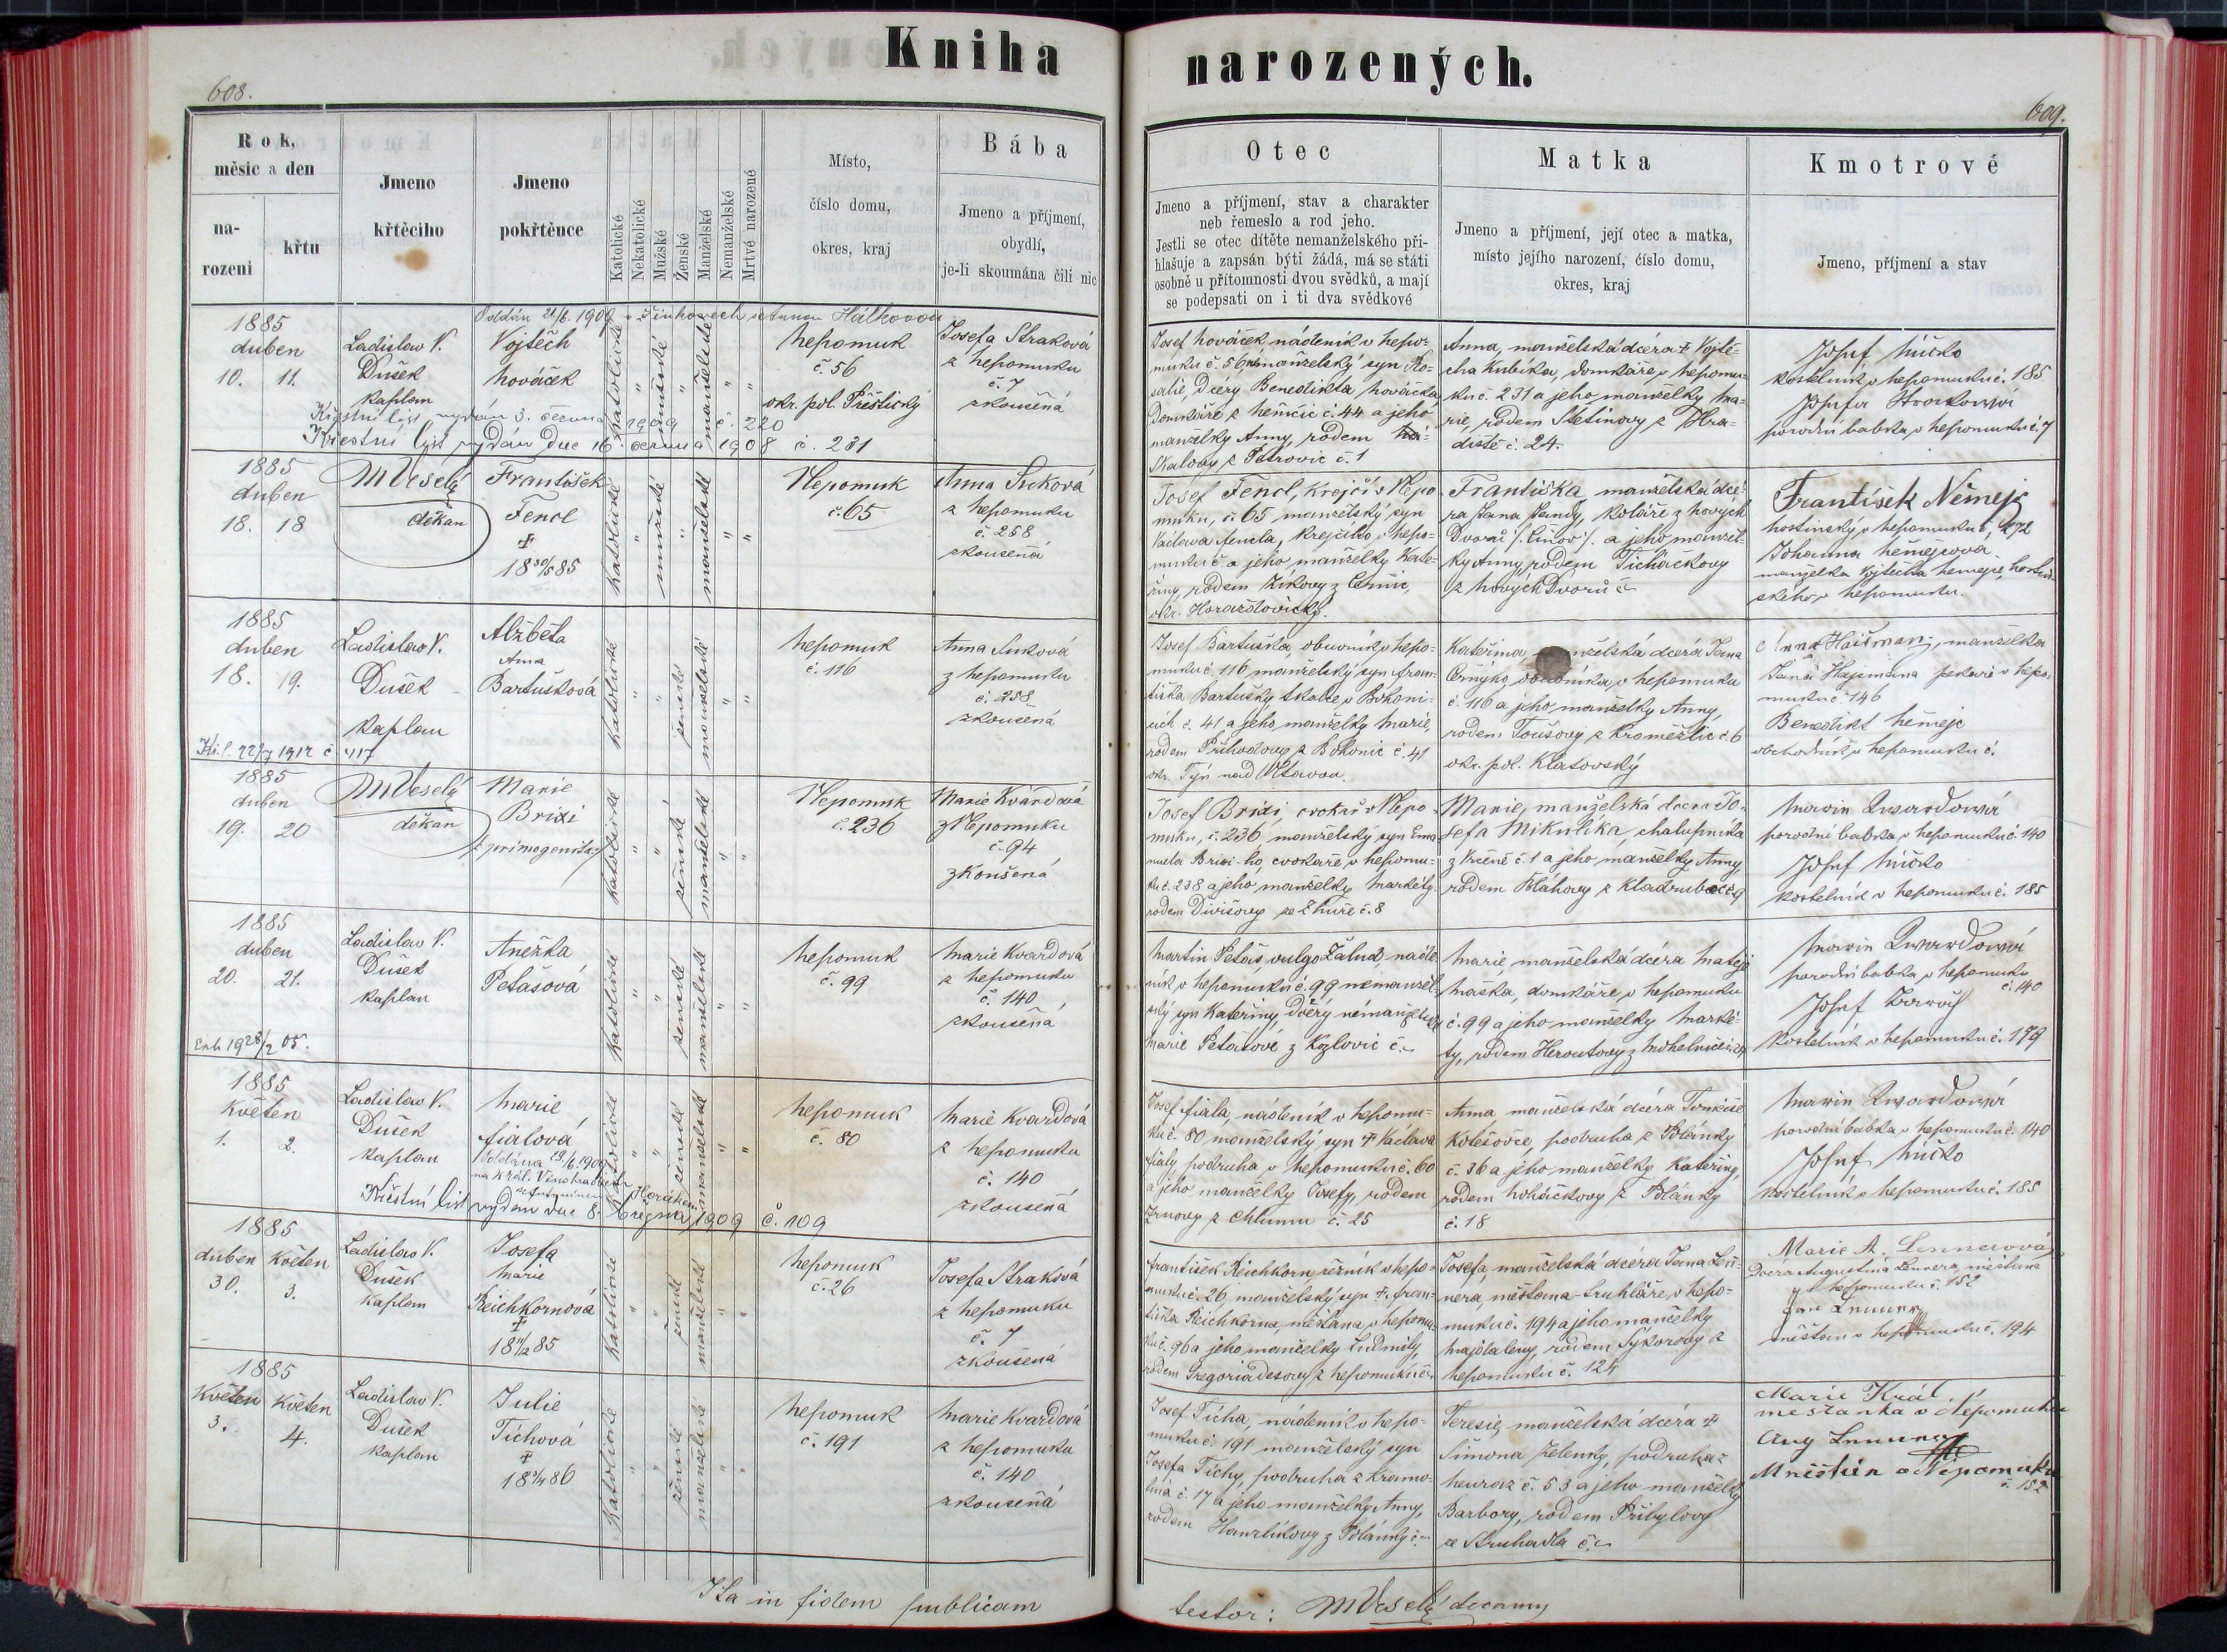 Kniha narozených.
608.
609.
Rok,
měsíc a den
na-
rozeni
křtu
Jmeno
křtěcího
Jmeno
pokřtěnce
Katolické
Nekatolické
Mužské
Ženské
Manželské
Nemanželské
Mrtvé narozené
Místo,
číslo domu,
okres, kraj
Bába
Jmeno a příjmení,
obydlí,
je-li skoumána čili nic
Otec
Jmeno a příjmení, stav a charakter
neb řemeslo a rod jeho.
Jestli se otec dítěte nemanželského při-
hlašuje a zapsán býti žádá, má se státi
osobně u přítomnosti dvou svědků, a mají
se podepsati on i ti dva svědkové
Matka
Jmeno a příjmení, její otec a matka,
místo jejího narození, číslo domu,
okres, kraj
Kmotrové
Jmeno, příjmení a stav
1885
duben
10. 11.
Ladislav V.
Dušek
kaplan
Vojtěch
Nováček
katolické
mužské
manželské
Nepomuk
č. 56
okr. pol. Přeštický
Josefa Straková
z Nepomuku
č. 7
zkoušená
Křestní list vydán 3. června 1909 č. 220
Křestní list vydán dne 16. června 1908 č. 231
Josef Nováček nádeník v Nepo-
muku č. 56, nemanželský syn Ro-
salie, dcery Benedikta Nováčka
domkáře z Němčic č. 44 a jeho
manželky Anny, rodem
Skalovy z Petrovic č. 1
Anna, manželská dcera † Vojtě-
cha Kubíka, domkáře v Nepomu-
ku č. 231 a jeho manželky Ma-
rie, rodem Stetinovy z Hra-
diště č. 24.
Josef Mičko
kostelník v Nepomuku č. 185
Josefa Straková
porodní babka v Nepomuku č. 7
1885
duben
18. 18
M Veselý
děkan
František
Fencl
†
18 30/5 85
katolické
mužské
manželské
Nepomuk
č. 65
Anna Suková
z Nepomuku
č. 258
zkoušená
Josef Fencl, krejčí v Nepo
muku, č. 65 manželský syn
Václava Fencla, krejčího v Nepo-
muku č. a jeho manželky Kate-
řiny, rodem
okr. Horažďovický.
Františka manželská dce-
ra Jana Jandy, koláře z Nových
Dvorů a jeho manžel-
ky Anny, rodem Ticháčkovy
z Nových Dvorů č
František Němejc
hostinský v Nepomuku č, 272
Johanna Němejcová
manželka Vojtěcha Němejce, hostin-
ského v Nepomuku.
1885
duben
18. 19.
Ladislav V.
Dušek
kaplan
Alžběta
Anna
Bartušková
katolické
ženské
manželské
Nepomuk
č. 116
Anna Suková
z Nepomuku
č. 258
zkoušená
Kř. l. 22/7 1912 č 417
Josef Bartuška, obuvník v Nepo-
muku č. 116 manželský syn Fran-
tiška Bartušky tkalce v Bohoni-
cích č. 41 a jeho manželky Marie,
rodem Příhodovy z Bohonic č. 41
okr. Týn nad Vltavou.
Kateřina, manželská dcera Jana
v Nepomuku
č. 116 a jeho manželky Anny
rodem Toušovy z Kroměždic č. 6
okr. pol. Klatovský
Anna Hajšman, manželka
Jana Hajšmana pekaře v Nepo-
muku č. 146
Benedikt Němejc
obchodník v Nepomuku č.
1885
duben
19. 20
M Veselý
děkan
Marie
Brixi
/:primogenita:/
katolické
ženské
manželské
Nepomuk
č. 236
Marie Kvardová
z Nepomuku
č. 94
zkoušená
Josef Brixi, cvokař v Nepo
muku, č. 236, manželský syn Ema
nuela Brixi-ho, cvokaře v Nepomu-
ku č. 238 a jeho manželky Markéty
rodem Divišovy ze Zhuře č. 8
Marie, manželská dcera Jo-
sefa Mikulíka, chalupníka
z Vrčeně č. 1 a jeho manželky Anny,
rodem Bláhovy z Kladrubce č. 9
Marie Kvardová
porodní babka v Nepomuku č. 140
Josef Mičko
kostelník v Nepomuku č. 185
1885
duben
20. 21.
Ladislav V.
Dušek
kaplan
Anežka
Petašová
katolické
ženské
manželské
Nepomuk
č. 99
Marie Kvardová
z Nepomuku
č. 140
zkoušená
Martin Petáš, vulgo Žalud, náde
ník v Nepomuku č. 99 nemanžel-
ský syn Kateřiny, dcery nemanželské
Marie Petášové z Kozlovic č.
Marie, manželská dcera Matěje
Maška, domkáře v Nepomuku
č. 99 a jeho manželky Marké-
ty, rodem Heroutovy z Mohelnice
Marie Kvardová
porodní babka v Nepomuku
č. 140
Josef
kostelník v Nepomuku č. 179
1885
Květen
1. 2.
Ladislav V.
Dušek
kaplan
Marie
Fialová
katolické
ženské
manželské
Nepomuk
č. 80
Marie Kvardová
z Nepomuku
č. 140
zkoušená
Křestní list vydán dne 8. března 1909 č. 109
Josef Fiala, nádeník v Nepomu-
ku č. 80, manželský syn † Václava
Fialy, podruha v Nepomuku č. 60
a jeho manželky Josefy, rodem
z Chlumu č. 25
Anna manželská dcera Tomáše
Kolešovce, podruha z Polánky
č. 36 a jeho manželky Kateřiny
rodem Noháčkovy z Polánky
č. 18
Marie Kvardová
porodní babka v Nepomuku č. 140
Josef Mičko
kostelník v Nepomuku č. 185
1885
duben Květen
30. 3.
Ladislav V.
Dušek
kaplan
Josefa
Marie
Reichkornová
†
katolické
ženské
manželské
Nepomuk
č. 26
Josefa Straková
z Nepomuku
č. 7
zkoušená
František Reichkorn řezník v Nepo-
muku č. 26 manželský syn †. Fran-
tiška Reichkorna, měšťana v Nepomu-
ku č. 96 a jeho manželky Ludmily,
rodem Gregoriadesovy z Nepomuku č.
Josefa, manželská dcera Jana Len-
nera, měšťana-truhláře, v Nepo-
muku č. 194 a jeho manželky
Majdaleny, rodem Sýkorovy z
Nepomuku č. 124
Marie A. Lennerová
dcera Augustina Lennera, měšťana
v Nepomuku č. 152
Jan Lenner
měšťan v Nepomuku č. 194
1885
Květen Květen
3. 4.
Ladislav V.
Dušek
kaplan
Julie
Tichová
†
katolické
ženské
manželské
Nepomuk
č. 191
Marie Kvardová
z Nepomuku
č. 140
zkoušená
Josef Tichá, nádeník v Nepo-
muku č. 191 manželský syn
Josefa Tichý, podruha z Kramo-
lína č. 17 a jeho manželky Anny,
rodem Hanzlíkovy z Polánky č.
Teresie manželská dcera †
Šimona Zelenky, podruha z
Neuraz č. 53 a jeho manželky
Barbory, rodem Přibylovy
ze Struhadla č.
Marie Král
měšťanka v Nepomuku
Aug Lenner
Měštěn v Nepomuku
č. 152
Ita in fidem publicam
testor: M Veselý decanus